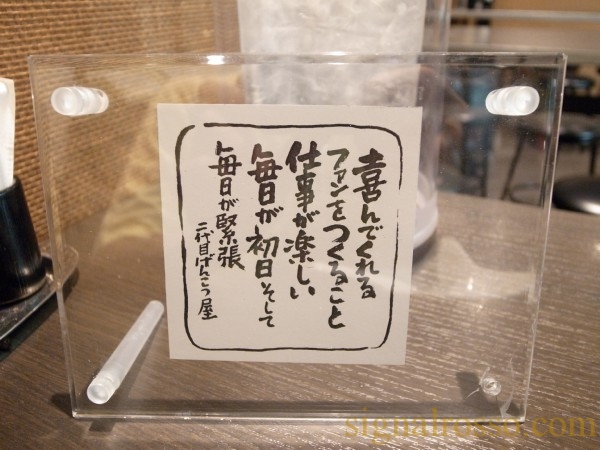 喜んでくれる
ファンをつくること
仕事が楽しい
毎日が初日そして
毎日が緊張
二代目げんこつ屋
signalrosso.com